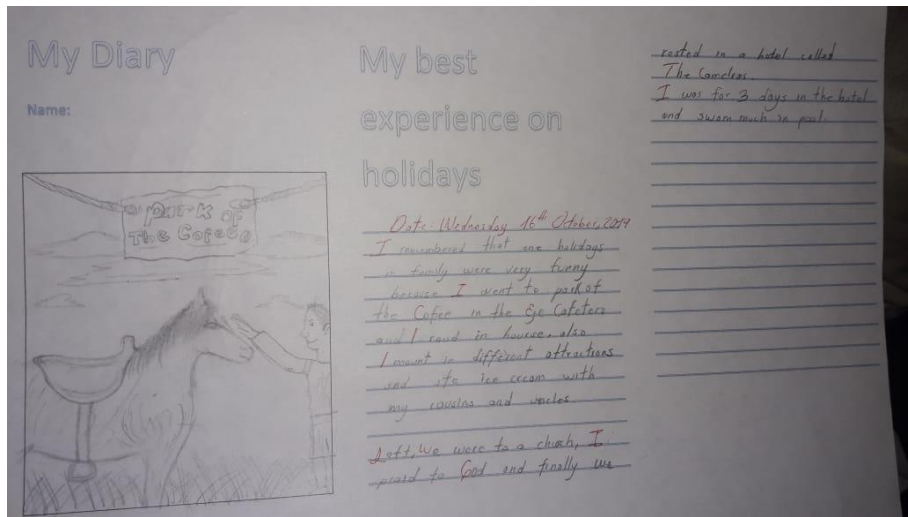 My Diary
Name:
PARK OF
THE COFEE
My best
experience on
holidays
Date: Wednesday 16th October, 2019
I remembered that one holidays
in family were very funny
because I went to park of
the Cofee in the Eje Cafetero
and I raud in hourse, also
I mount in different attractions
and ate ice cream with
my cousins and uncles.
Left, We were to a church, I
praid to God and finally we
rested in a hotel called
The Cameleas.
I was for 3 days in the hotel
and swam much in pool.